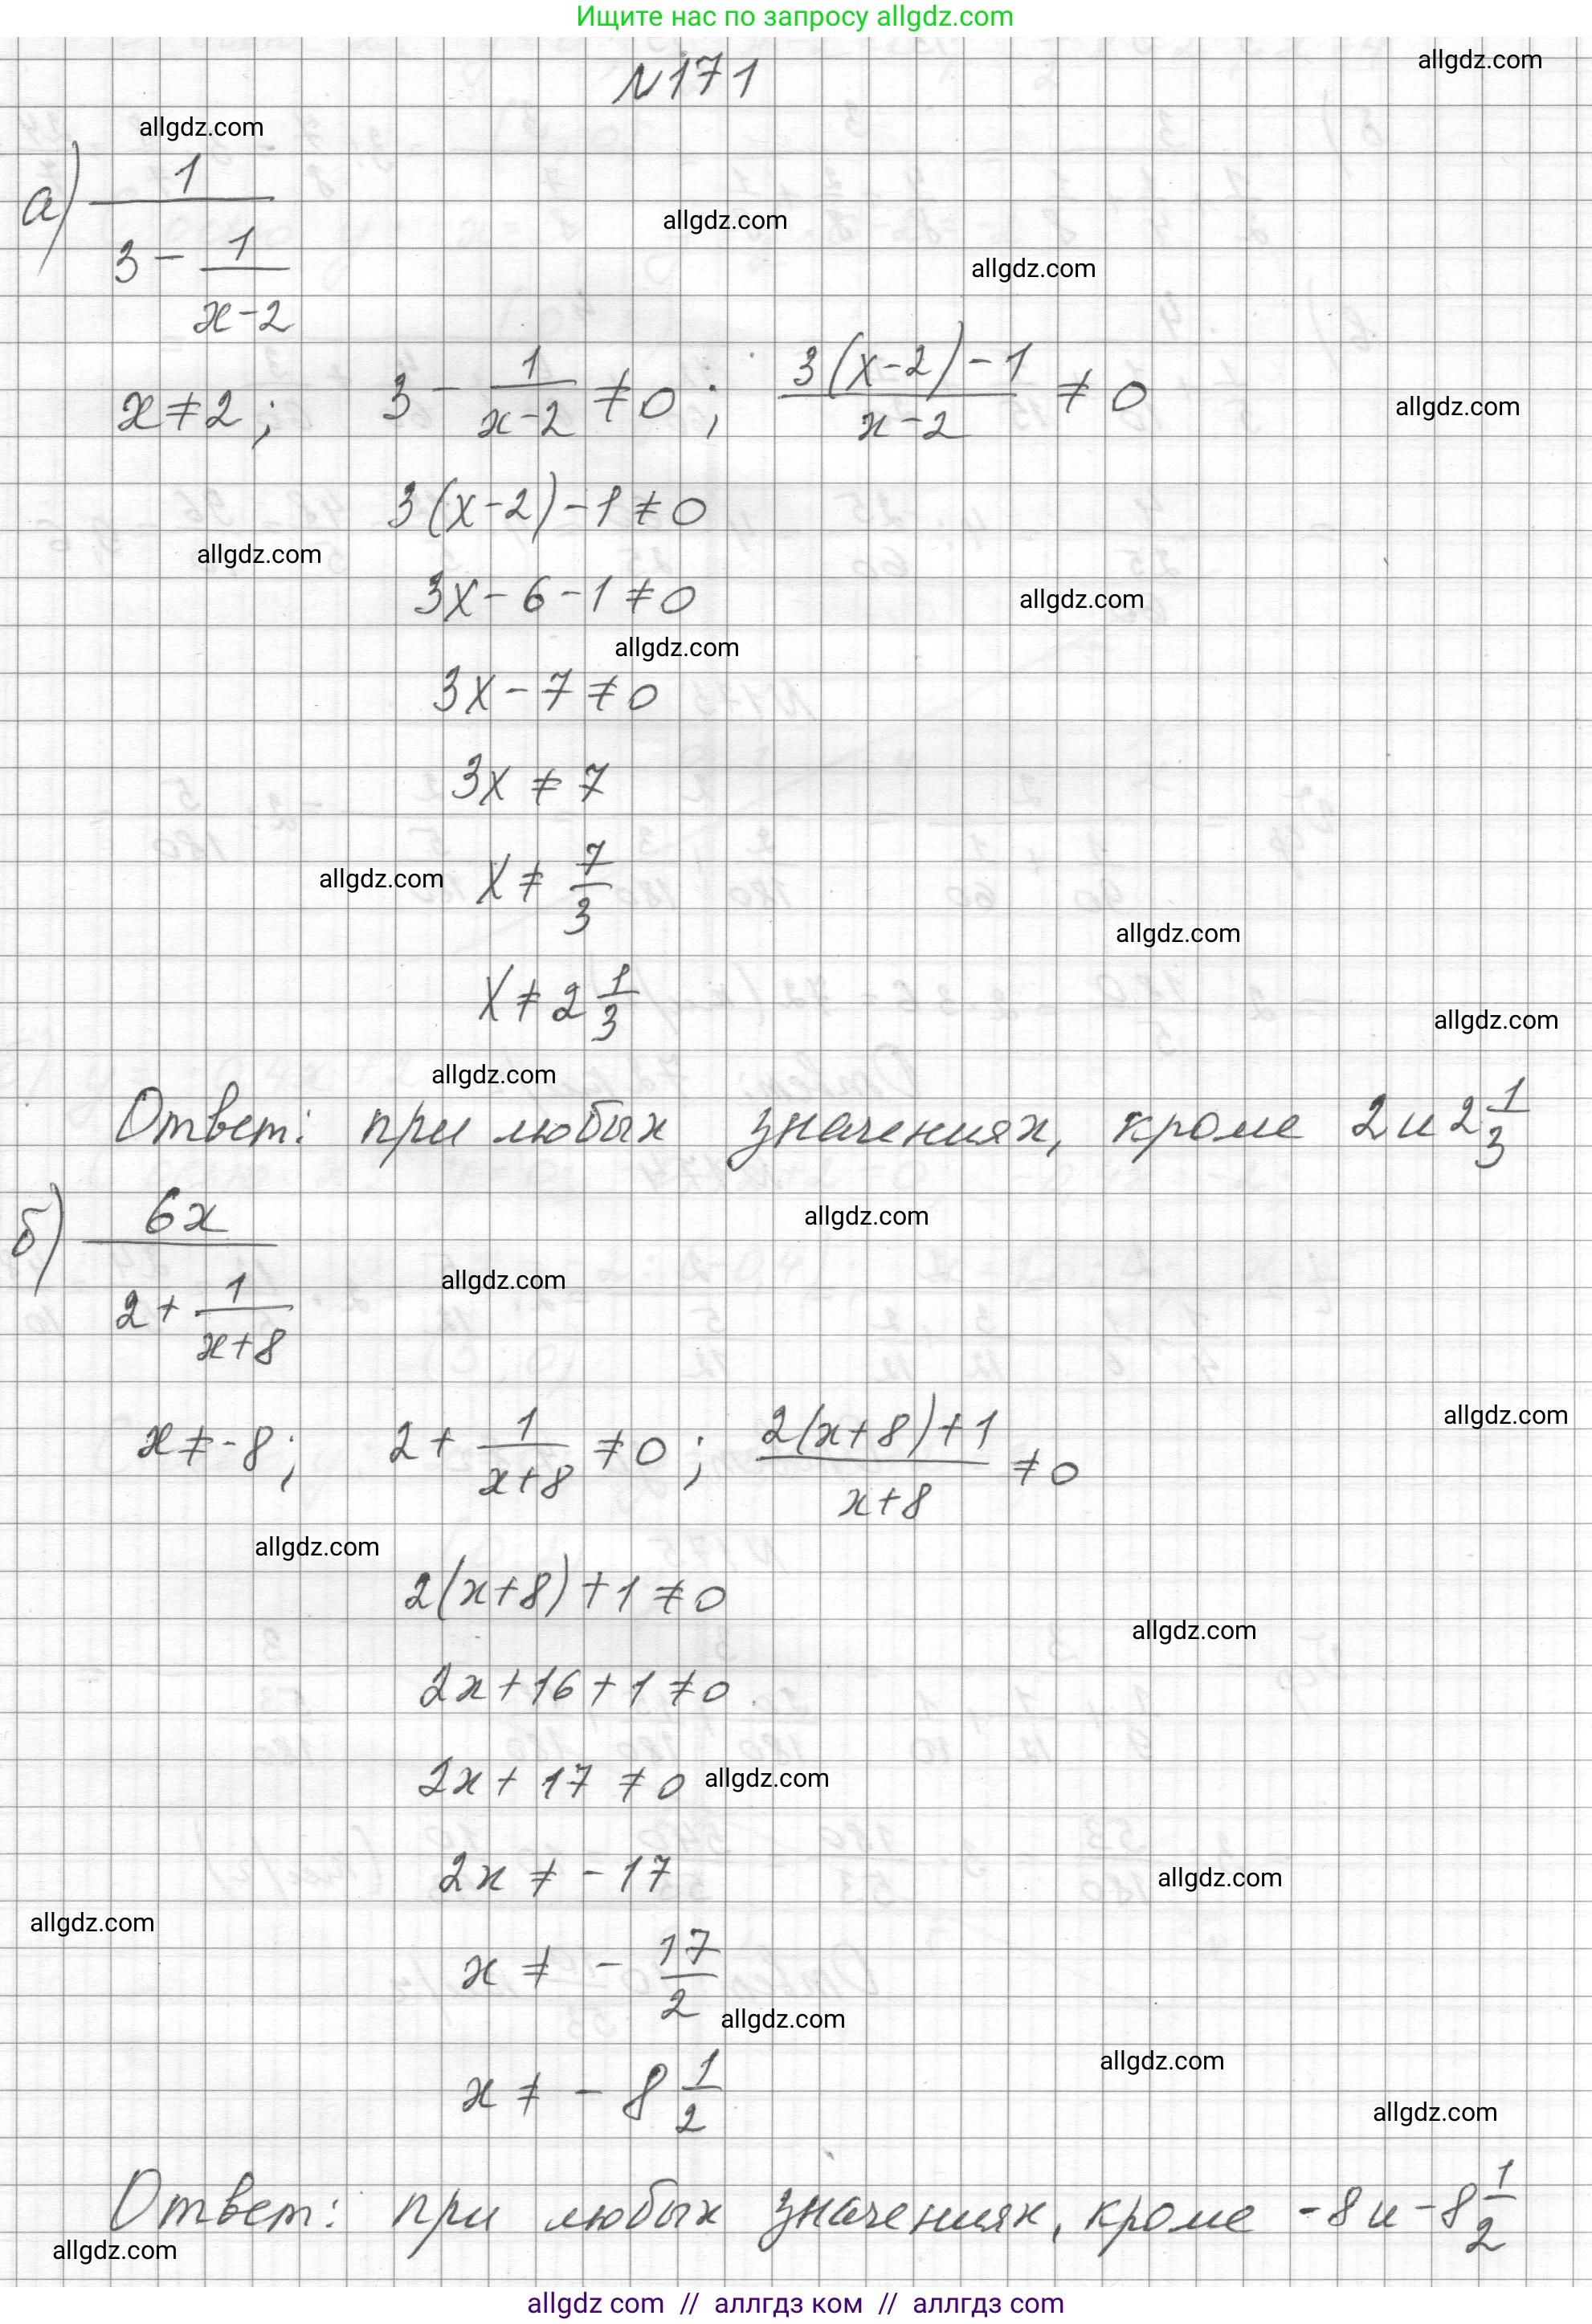 Ищите нас по запросу allgdz.com
allgdz.com
N171
allgdz.com
а) 1/(3 - 1/(x-2))
allgdz.com
allgdz.com
x≠2; 3 - 1/(x-2) ≠0; (3(x-2)-1)/(x-2) ≠ 0
allgdz.com
3(x-2)-1≠0
allgdz.com
3x-6-1≠0
allgdz.com
allgdz.com
3x-7≠0
3x≠7
allgdz.com
x≠ 7/3
allgdz.com
x≠2 1/3
allgdz.com
allgdz.com
Ответ: при любых значениях, кроме 2 и 2 1/3
allgdz.com
б) 6x/(2 + 1/(x+8))
allgdz.com
allgdz.com
x≠-8; 2 + 1/(x+8) ≠0; (2(x+8)+1)/(x+8) ≠0
allgdz.com
2(x+8)+1≠0
allgdz.com
2x+16+1≠0
2x+17≠0
allgdz.com
2x≠-17
allgdz.com
allgdz.com
x≠ - 17/2
allgdz.com
allgdz.com
x≠ - 8 1/2
allgdz.com
Ответ: при любых значениях, кроме -8 и -8 1/2
allgdz.com
allgdz com // аллгдз ком // аллгдз com